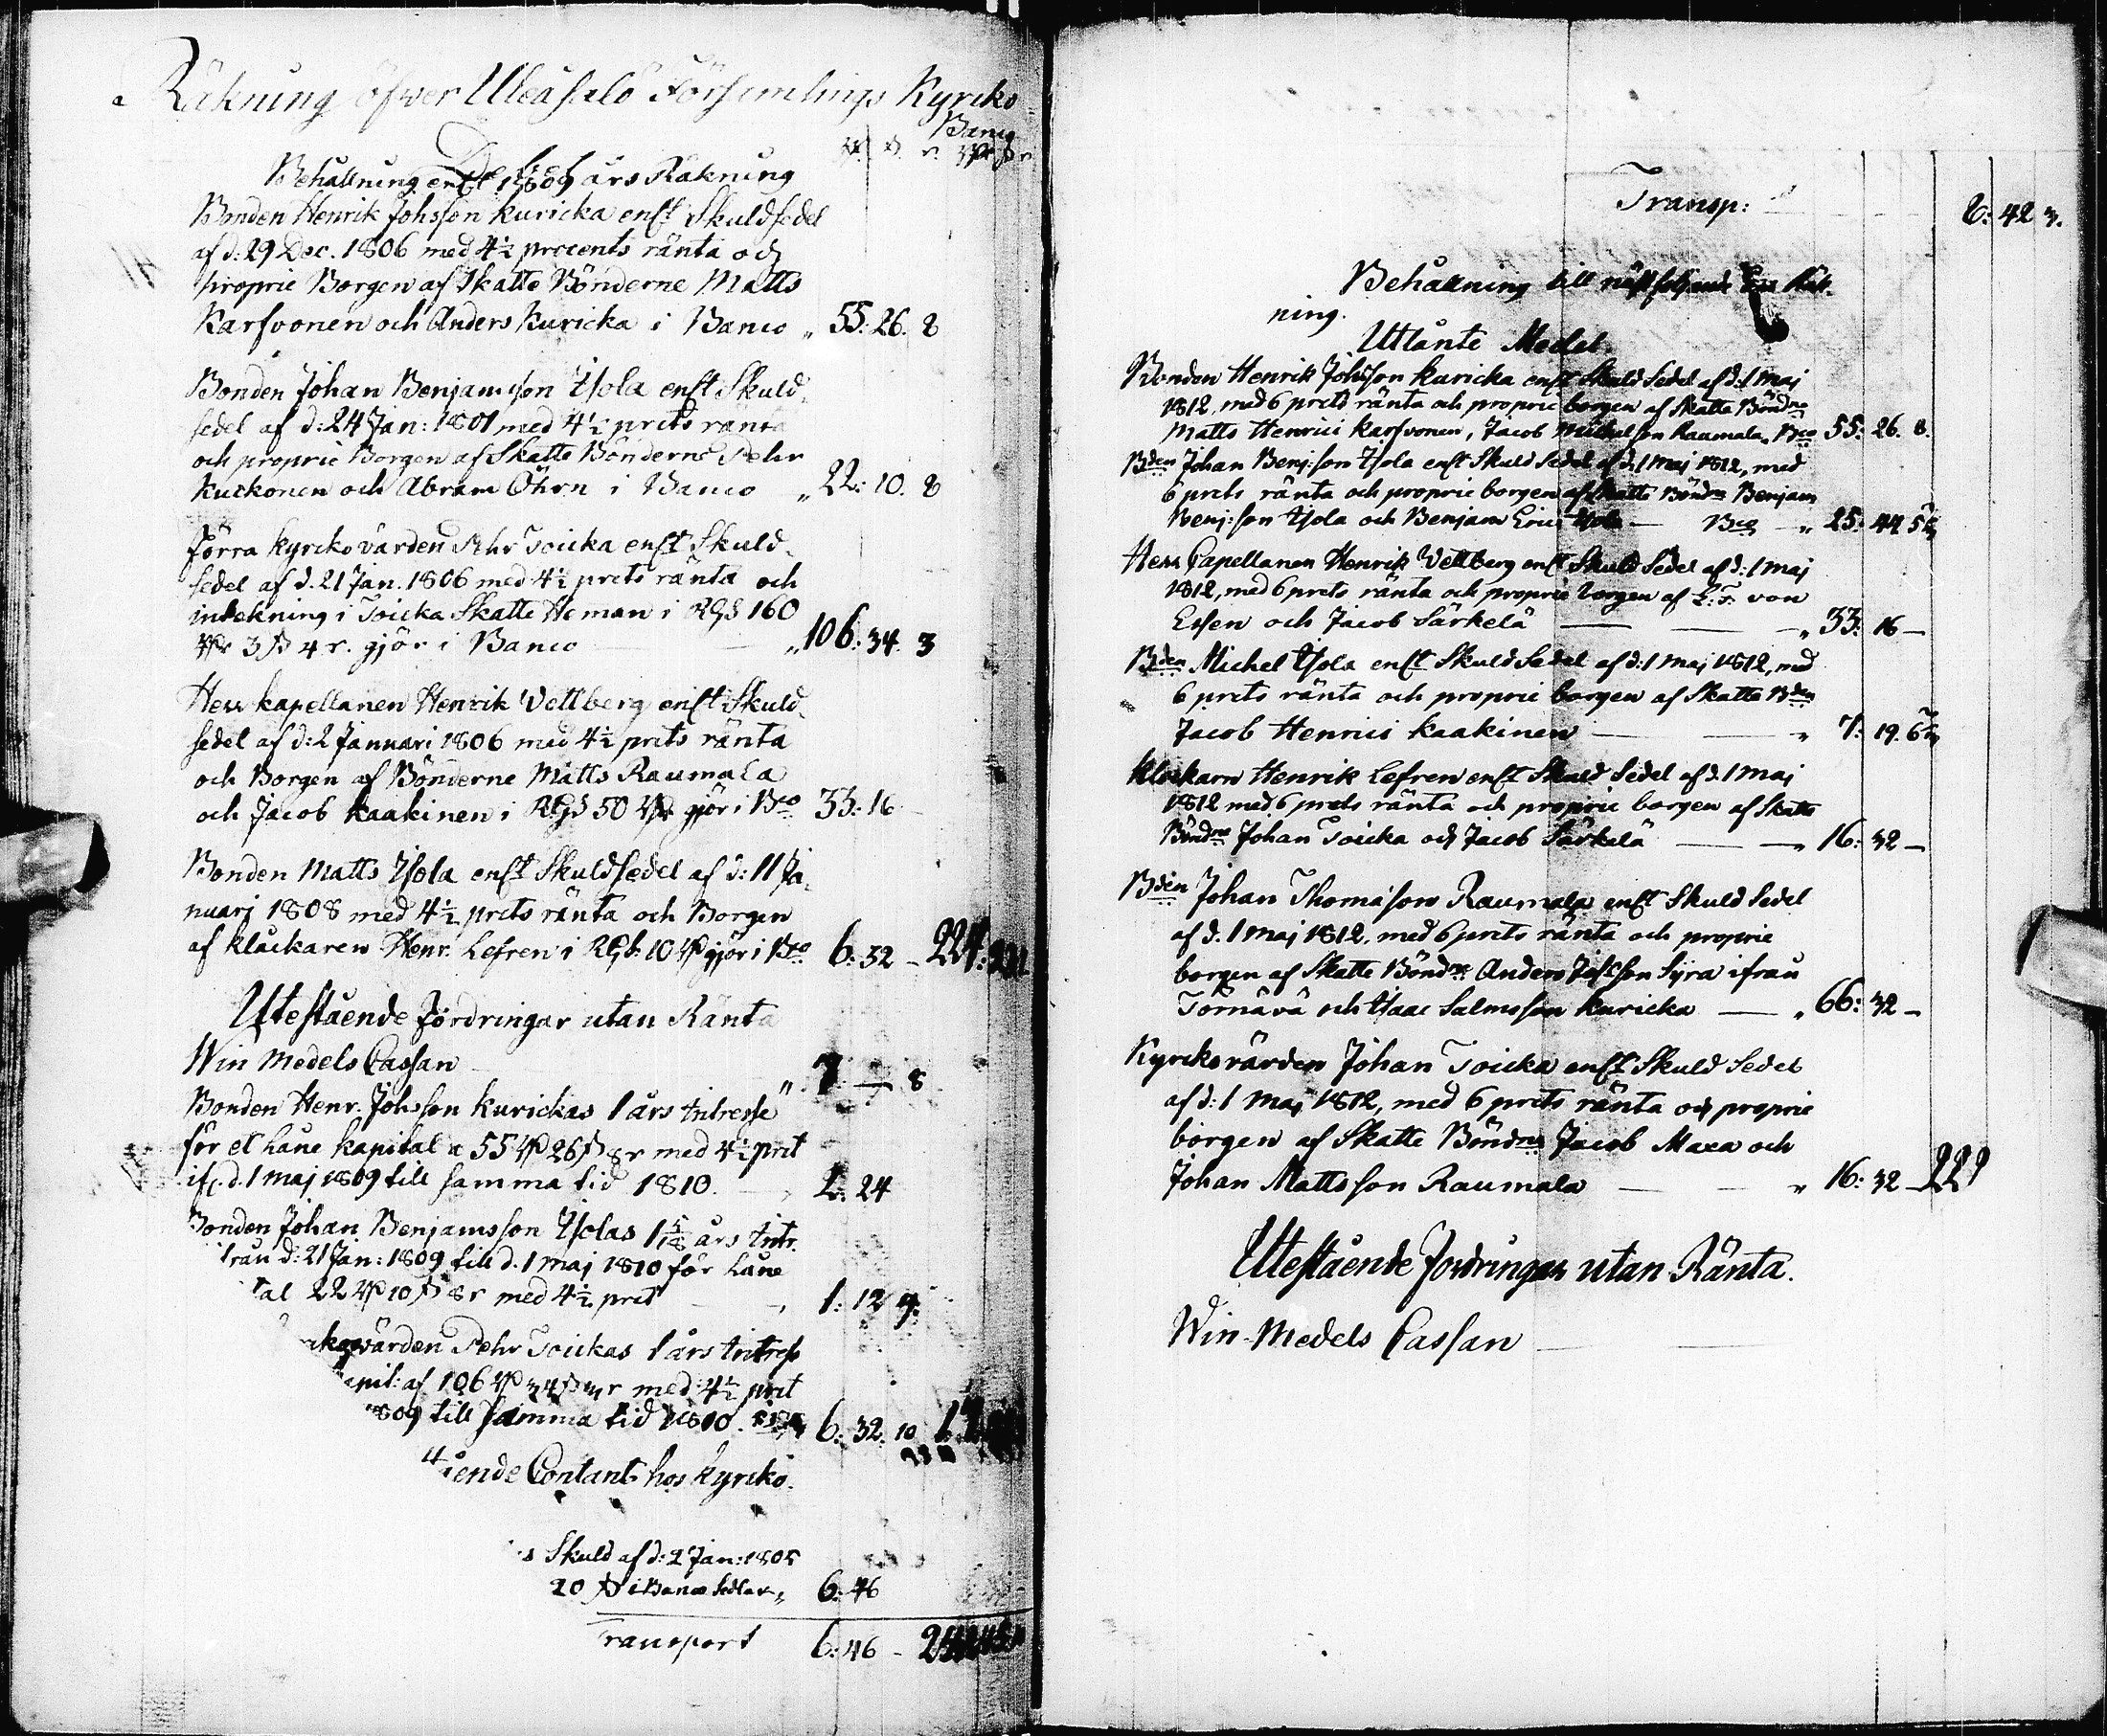 Räkning öfver Uleåsalo Församlings Kyrcko
Banco
Debet
Behållning enligt 1809 års Räkning
Bonden Henrik Johsson Kuricka enligt Skuldsedel
af d: 29 Dec. 1806 med 4½ procents ränta och
proprie Borgen af Skatte Bönderne Matts
Karsvonen och Anders Kuricka i Banco " 55: 26. 8
Bonden Johan Benjamsson Ysola enligt Skuld
sedel af d: 24 Jan: 1801 med 4½ prcts ränta
och proprie Borgen af Skatte Bönderne Pehr
Kuckonen och Abram Öhrn i Banco " 22: 10. 8
Förra Kyrckovärden Pehr Toicka enligt Skuld-
sedel af d. 21 Jan. 1806 med 4½ prcts ränta och
inteckning i Toicka Skatte Heman i RGS 160
3 ß 4 r. gjör i Banco " 106: 34. 3
Herr Kapellanen Henrik Vettberg enligt Skuld
sedel af d: 2 Januari 1806 med 4½ prcts ränta
och Borgen af Bönderne Matts Raumala
och Jacob Kaakinen i RGS 50 gjör i Bco 33: 16
Bonden Matts Ysola enligt Skuldsedel af d: 11 Ja-
nuarj 1808 med 4½ prcts ränta och Borgen
af klåckaren Henr. Lefren i RGS: 10 gjör i Bco 6: 32 - 224:
Utestående fordringar utan Ränta
Win Medels Cassan 7 - 8
Bonden Henr. Johsson Kurickas 1 års Intresse
för et Låne kapital a 55 26 ß 8 r med 4½ prct
ifr. d. 1 Maj 1809 till samma tid 1810. 2: 24
Bonden Johan Benjamsson Ysolas 1 5/18 års Intr.
från d: 21 Jan: 1809 till d. 1 Maj 1810 för Låne
tal 22 10 ß 8 r med 4½ prct 1: 12 9.
värden Pehr Toickas 1 års Intress
Capit: af 106 34 ß 3 r med 4½ prct
1809 till samma tid 1810. 6: 32. 10
ående Contant hos Kyrcko.
s Skuld af d: 2 Jan: 1805
20 ß i Banco Sedlar, 6: 46
Transport 6: 46 -
Transp: 6: 42 3.
Behållning till nästföljande Års Räk-
ning.
Utlånte Medel.
Bonden Henrik Johsson Kuricka enligt Skuld Sedel af d: 1 Maj
1812, med 6 prcts ränta och proprie borgen af Skatte Böndne
Matts Henrici Karsvonen, Jacob Michelson Raumala, Bco 55: 26. 8.
Bden Johan Benj:son Ysola enligt Skuld Sedel af d. 1 Maj 1812, med
6 prcts ränta och proprie borgen af Skatte Böndne Benjam
Benj:son Ysola och Benjam Erici Ysola — Bco " 25: 44 5
Herr Capellanen Henrik Vettberg enligt Skuld Sedel af d: 1 Maj
1812, med 6 prcts ränta och proprie borgen af E: F: von
Essen och Jacob Särkelä — " 33: 16 —
Bden Michel Ysola enligt Skuld Sedel af d: 1 Maj 1812, med
6 prcts ränta och proprie borgen af Skatte Bden
Jacob Henrici Kaakinen — " 7: 19. 6
Klockarn Henrik Lefren enligt Skuld Sedel af d. 1 Maj
1812 med 6 prcts ränta och proprie borgen af Skatte
Böndne Johan Toicka och Jacob Särkelä — " 16: 32 —
Bden Johan Thomasson Raumala enligt Skuld Sedel
af d. 1 Maj 1812, med 6 prcts ränta och proprie
borgen af Skatte Böndne Anders Syra ifrån
Törnävä och Isaac Salmosson Kuricka — " 66: 32 —
Kyrckovärden Johan Toicka enligt Skuld Sedel
af d: 1 Maj 1812, med 6 prcts ränta och proprie
borgen af Skatte Böndne Jacob Maxa och
Johan Mattsson Raumala — " 16: 32 — 222
Utestående Fordringar utan Ränta.
Win-Medels Cassan —